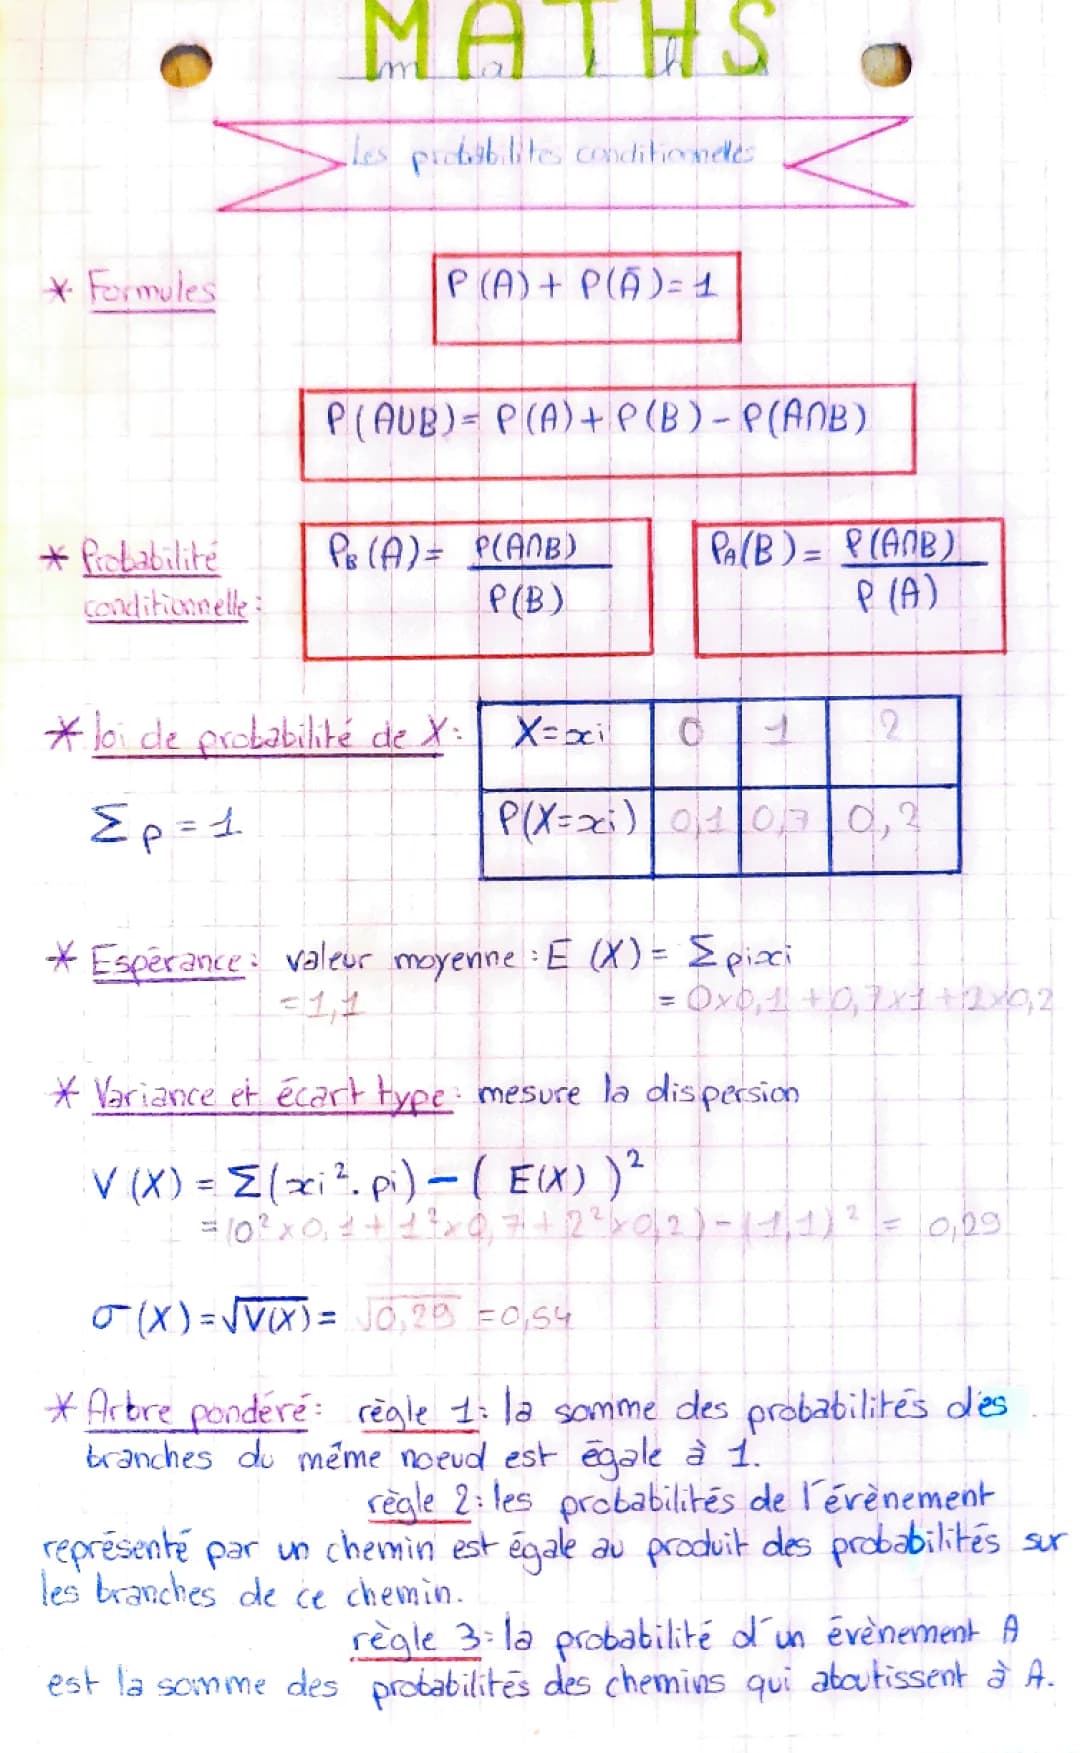 MATHS
m a t h s
Les probabilites conditionnelles
* Formules
P(A) + P(Ā) = 1
P(A∪B) = P(A) + P(B) - P(A∩B)
* Probabilité conditionnelle :
P_B(A) = P(A∩B) / P(B)
P_A(B) = P(A∩B) / P(A)
* loi de probabilité de X :
X=xi 0 1 2
P(X=xi) 0,1 0,7 0,2
Σp = 1
* Espérance : valeur moyenne : E(X) = Σ pixi
= 1,1 = 0x0,1 + 0,7x1 + 2x0,2
* Variance et écart type : mesure la dispersion
V(X) = Σ(xi². pi) - (E(X))²
= (0² x 0,1 + 1² x 0,7 + 2² x 0,2) - (1,1)² = 0,29
σ(X) = √V(X) = √0,29 = 0,54
* Arbre pondéré : règle 1: la somme des probabilités des
branches du même noeud est égale à 1.
règle 2: les probabilités de l'évènement
représenté par un chemin est égale au produit des probabilités sur
les branches de ce chemin.
règle 3: la probabilité d'un évènement A
est la somme des probabilités des chemins qui aboutissent à A.